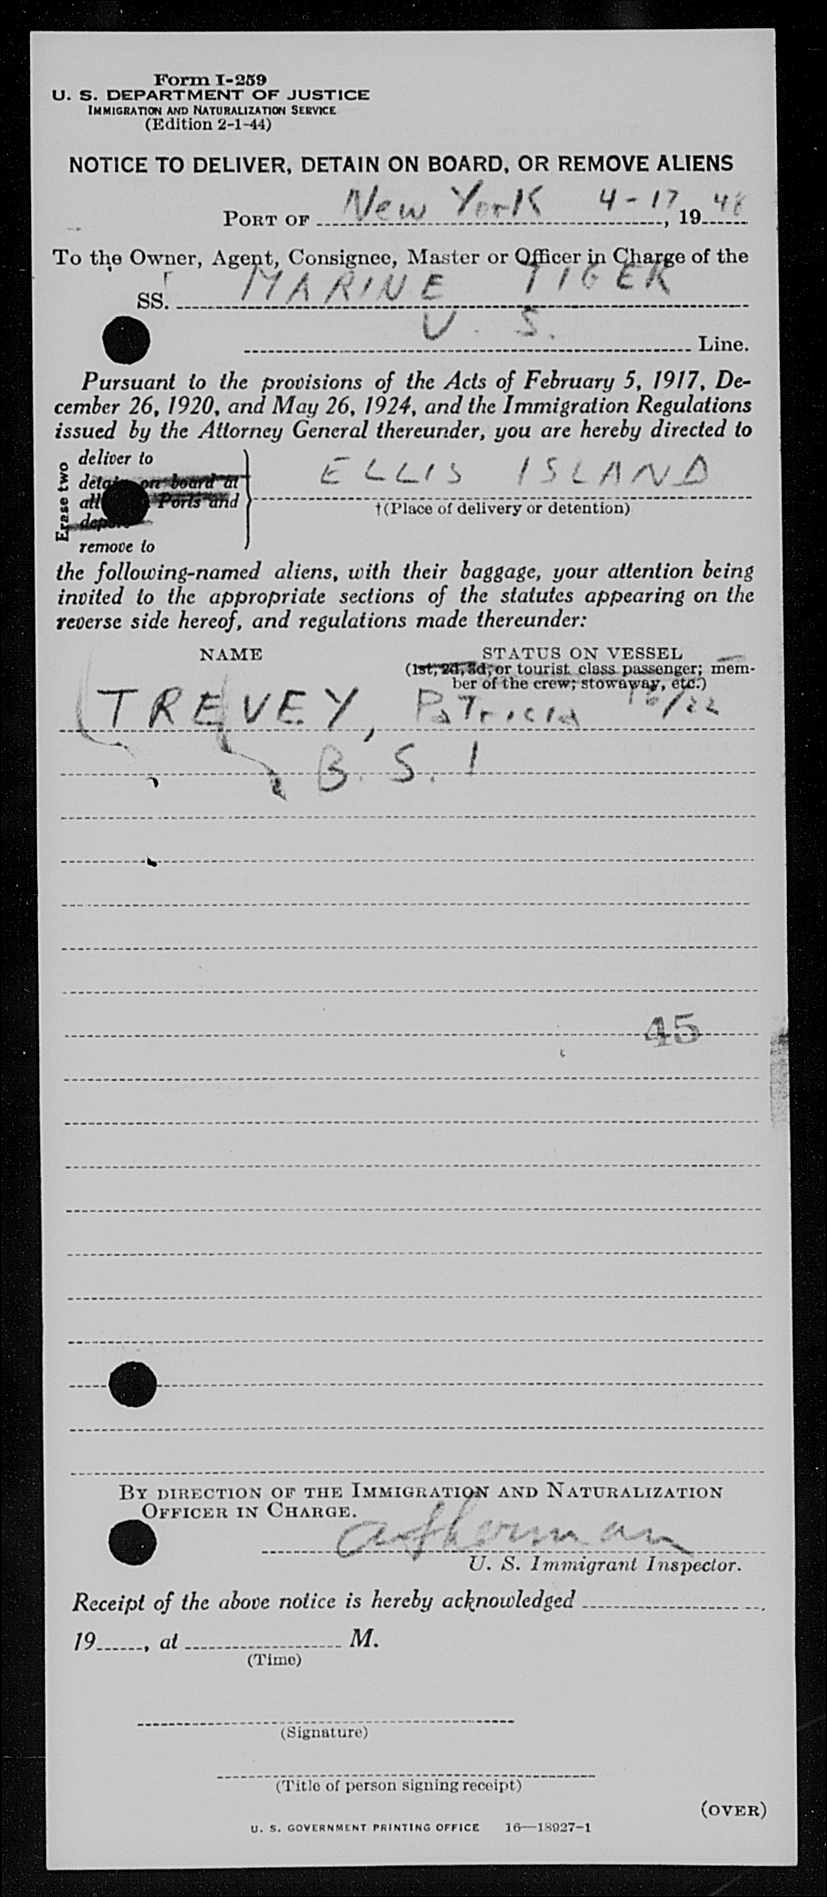 Form I-259
U. S. DEPARTMENT OF JUSTICE
IMMIGRATION AND NATURALIZATION SERVICE
(Edition 2-1-44)
NOTICE TO DELIVER, DETAIN ON BOARD, OR REMOVE ALIENS
PORT OF New York 4-17, 1948
To the Owner, Agent, Consignee, Master or Officer in Charge of the
SS. MARINE TIGER
U. S. Line.
Pursuant to the provisions of the Acts of February 5, 1917, De-
cember 26, 1920, and May 26, 1924, and the Immigration Regulations
issued by the Attorney General thereunder, you are hereby directed to
Erase two
deliver to
detain on board at
all Ports and
remove to
ELLIS ISLAND
†(Place of delivery or detention)
the following-named aliens, with their baggage, your attention being
invited to the appropriate sections of the statutes appearing on the
reverse side hereof, and regulations made thereunder:
NAME STATUS ON VESSEL
(1st, 2d, 3d, or tourist class passenger; mem-
ber of the crew; stowaway, etc.)
TREVEY, Patricia 16/22
B. S. I
45
BY DIRECTION OF THE IMMIGRATION AND NATURALIZATION
OFFICER IN CHARGE.
U. S. Immigrant Inspector.
Receipt of the above notice is hereby acknowledged
19 , at M.
(Time)
(Signature)
(Title of person signing receipt)
(OVER)
U. S. GOVERNMENT PRINTING OFFICE 16—18927-1